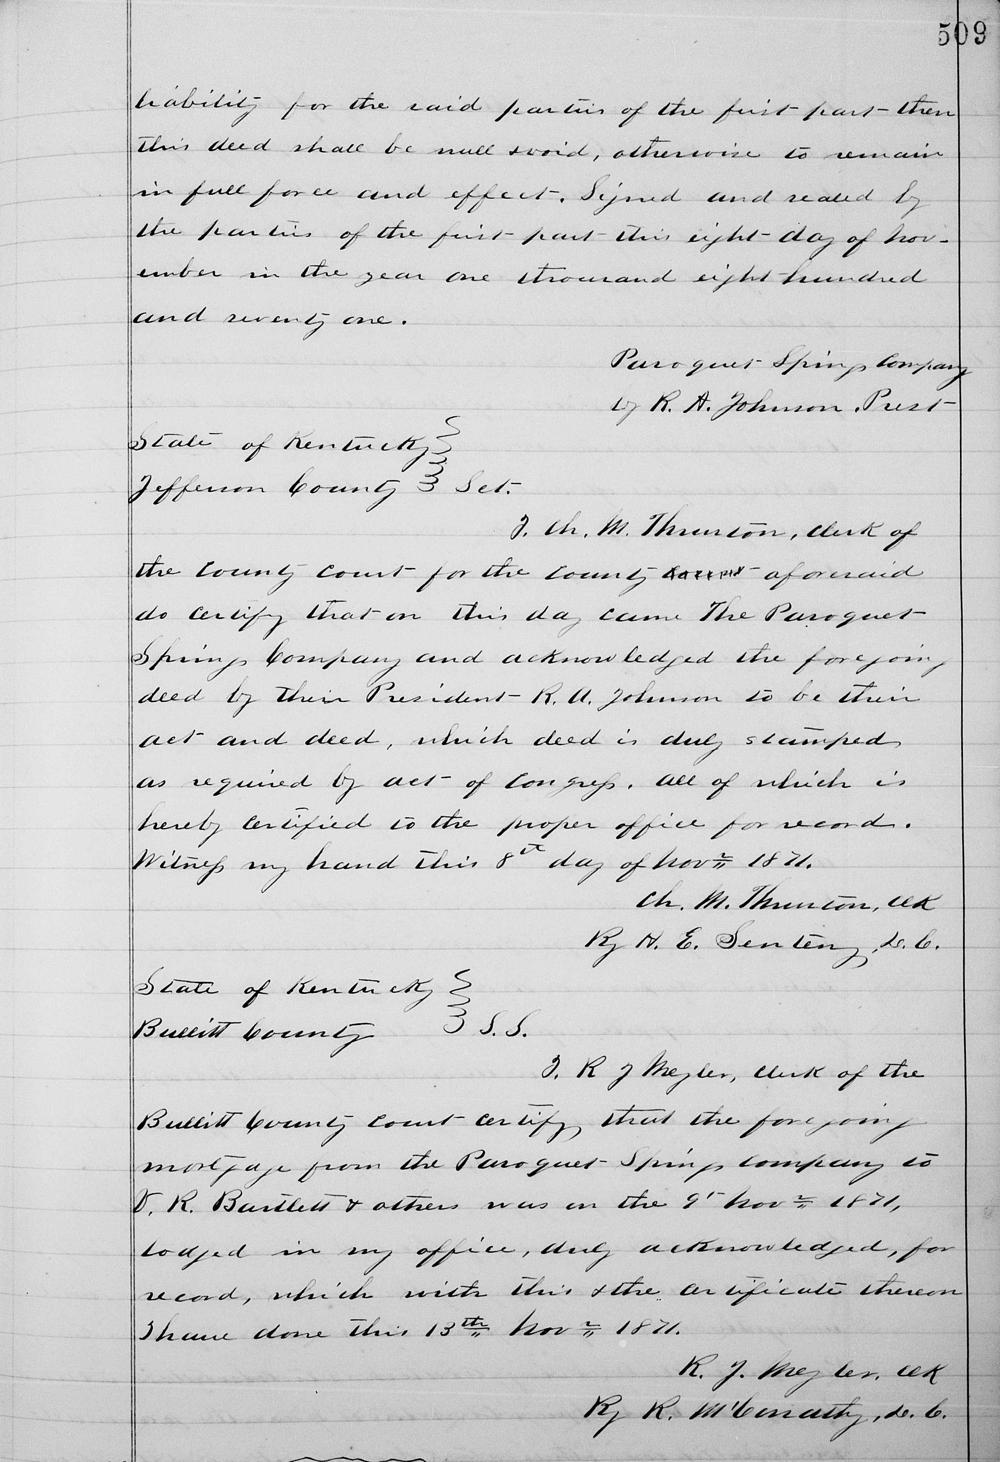 509
liability for the said parties of the first part then
this deed shall be null & void, otherwise to remain
in full force and effect. Signed and sealed by
the parties of the first part this eight day of Nov-
ember in the year one thousand eight hundred
and seventy one.
Paroquet Springs Company
by R. A. Johnson, Prest
State of Kentucky
Jefferson County Sct.
I. Ch. M. Thruston, Clerk of
the County Court for the County aforesaid
do certify that on this day came The Paroquet
Springs Company and acknowledged the foregoing
deed by their President R. A. Johnson to be their
act and deed, which deed is duly stamped
as required by act of Congress. All of which is
hereby certified to the proper office for record.
Witness my hand this 8th day of Novr 1871.
Ch. M. Thruston, Clk
By H. E. Senteny, D. C.
State of Kentucky
Bullitt County S. S.
I. R J Meyler, Clerk of the
Bullitt County Court certify, that the foregoing
mortgage from the Paroquet Springs Company to
R. Bartlett & others was on the 9th Novr 1871,
lodged in my office, duly acknowledged, for
record, which with this & the certificate thereon
I have done this 13th Novr 1871.
R. J. Meyler, Clk
By R. McConathy, D. C.